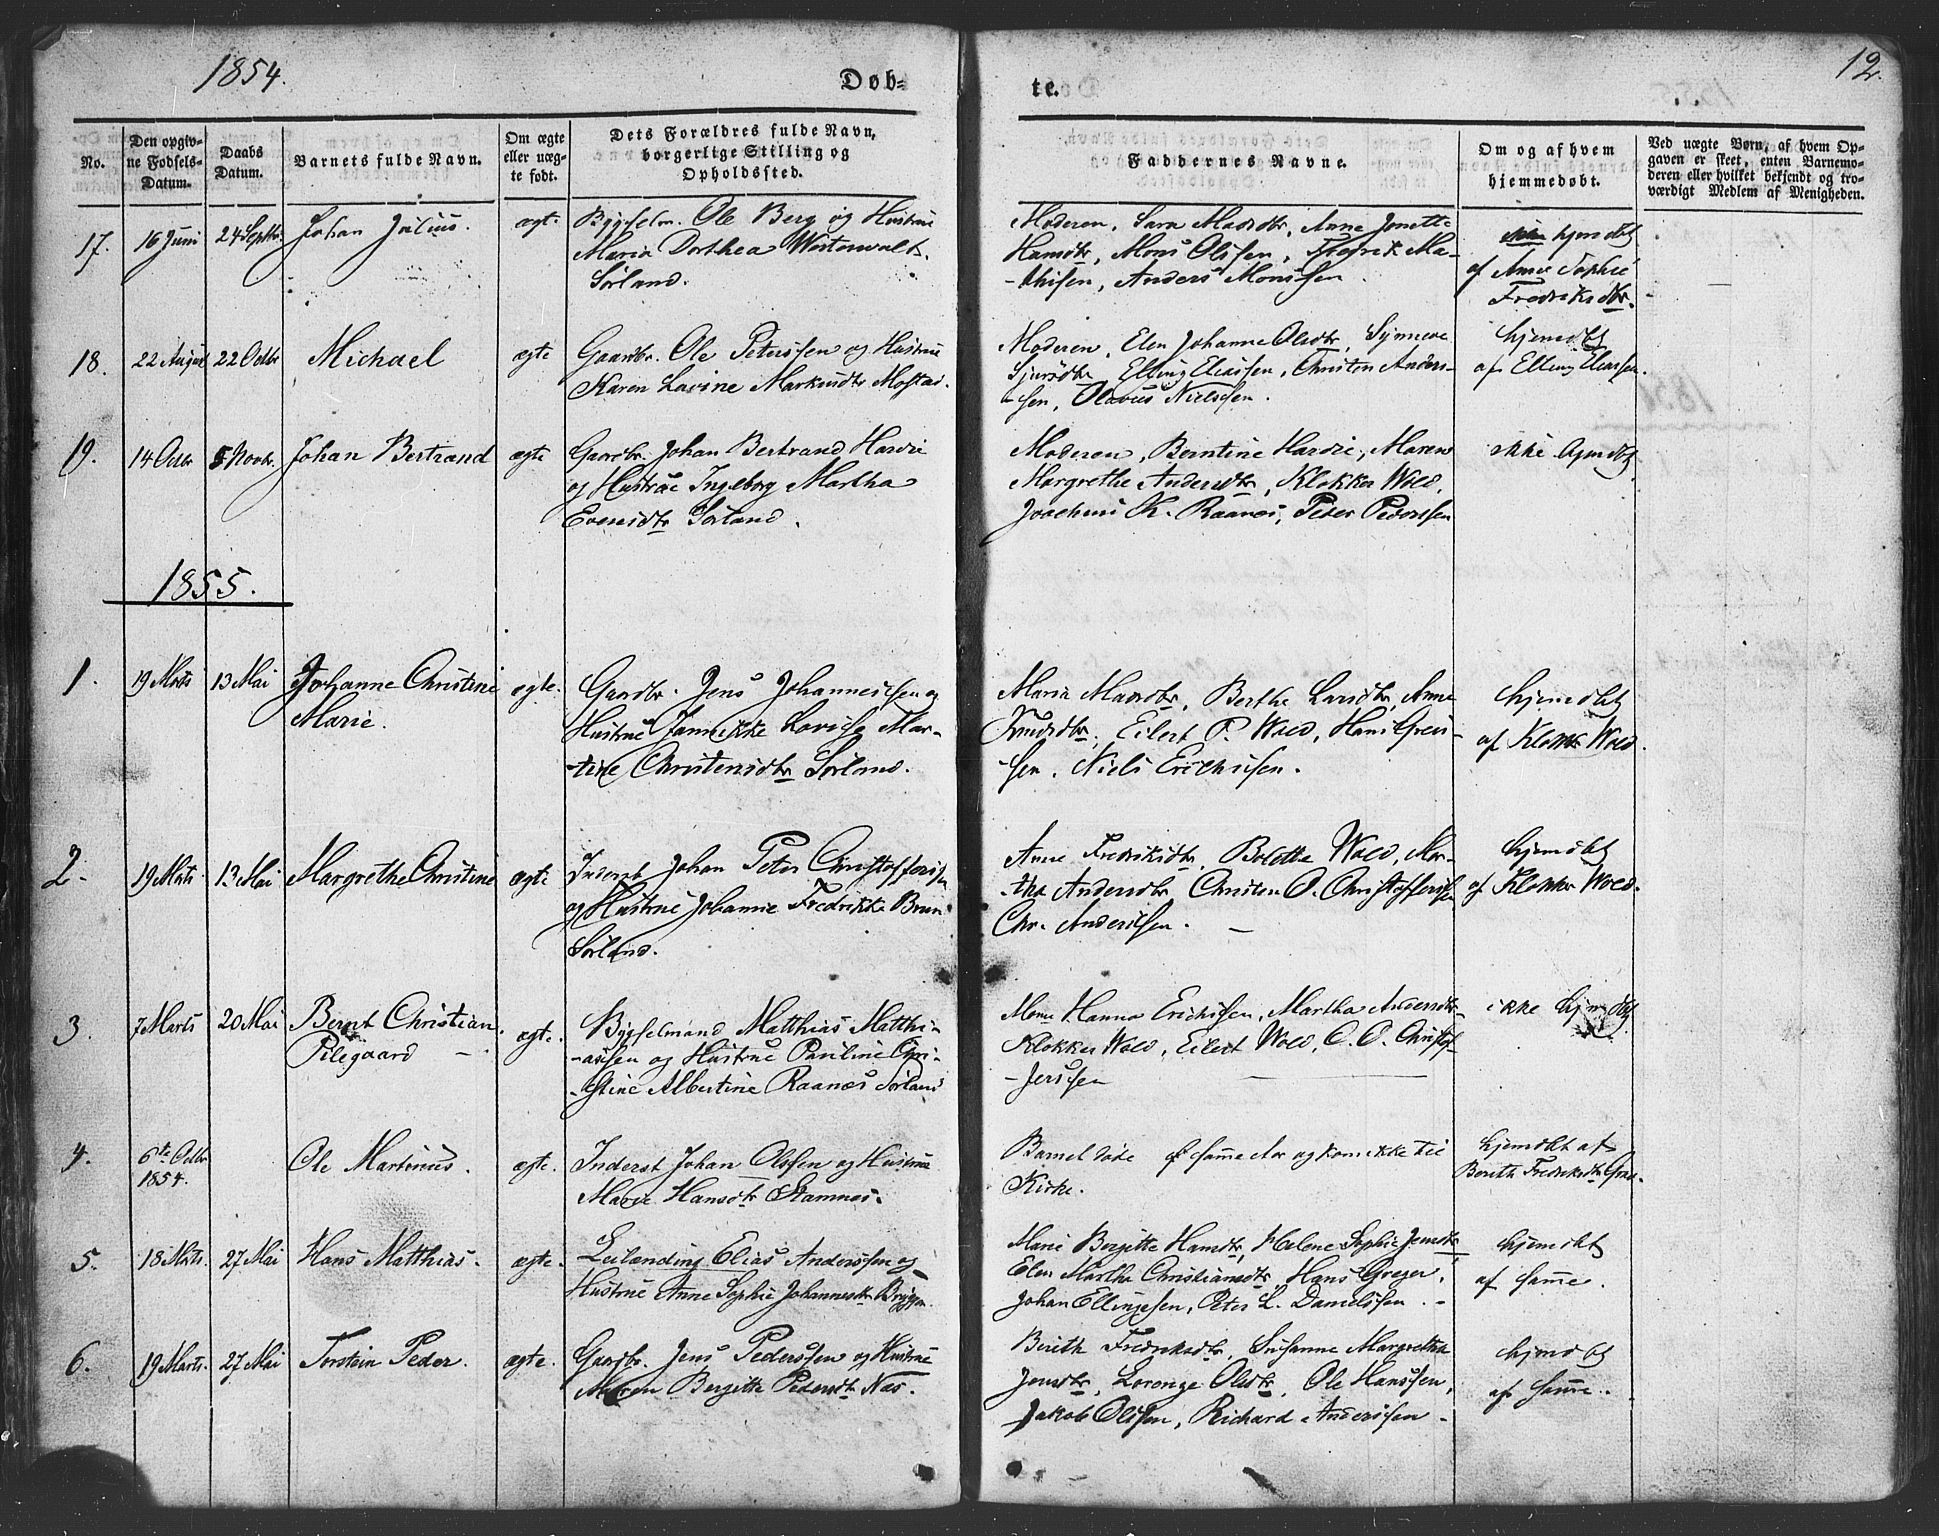 1854.
Døb-
te.
12.
No.
Den opgiv-
ne Fødsels-
Datum.
Daabs
Datum.
Barnets fulde Navn.
Om ægte
eller uæg-
te født.
Dets Forældres fulde Navn,
borgerlige Stilling og
Opholdssted.
Faddernes Navne.
Om og af hvem
hjemmedøbt.
Ved uægte Børn, af hvem Op-
gaven er skeet, enten Barnemo-
deren eller hvilket bekjendt og tro-
værdigt Medlem af Menigheden.
17. 16 Juni 24 Septbr Johan Julius. ægte
Bygselm. Ole Berg og Hustrue
Maria Dorthea Westerwalt.
Sørland.
Moderen, Sara Madsdtr, Anne Jonette
Hansdtr, Mons Olssen, Fredrik Ma-
-thisen, Anders Monssen
hjemdøbt
af Anne Sophie
Fredriksdtr.
18. 22 August 22 Octbr Michael ægte
Gaardbr. Ole Peterssen og Hustrue
Karen Lavine Markusdtr Mostad.
Moderen, Elen Johanne Olsdtr, Synneve
Sjursdtr, Elling Eliassen, Christen Anders-
-sen, Olavus Nielssen.
hjemdøbt
af Elling Eliassen.
19. 14 Octbr 5 Novbr. Johan Bertrand ægte
Gaardbr. Johan Bertrand Hardie
og Hustrue Ingeborg Martha
Evensdtr Sørland.
Moderen, Berntine Hardie, Maren
Margrethe Andersdtr, Klokker Wold,
Joachim K. Raanes, Peter Pederssen
ikke hjemdøbt
1855.
1. 19 Marts 13 Mai Johanne Christine
Marie.
ægte.
Gaardbr. Jens Johannessen og
Hustrue Jannikke Lovise Mar-
-tine Christensdtr Sørland.
Maria Madsdtr, Berthe Larsdtr, Anne
Knudsdtr, Eilert P. Wold, Hans Greis-
-sen, Niels Erichssen.
hjemdøbt
af Klokker Wold.
2. 19 Marts 13 Mai Margrethe Christine ægte
Inderst Johan Peter Christofferssen
og Hustrue Johanne Fredrikke Brun
Sørland.
Anne Fredriksdtr, Bolette Wold, Mar-
-tha Andersdtr, Christen O. Christofferssen
Chr. Anderssen.
hjemdøbt
af Klokker Wold.
3. 7 Marts 20 Mai Bernt Christian
Pilegaard
ægte.
Bygselmand Matthias Matthi-
-assen og Hustrue Pauline Chri-
-stine Albertine Raanes Sørland
Hanna Erichssen, Martha Andersdtr
Klokker Wold, Eilert Wold, C. O. Christof-
-ferssen
ikke hjemdøbt
4. 6te Octbr
1854.
Ole Martinus. ægte.
Inderst Johan Olssen og Hustrue
Marie Hansdtr Stamnes.
Barnet døde samme Aar og kom ikke til
Kirke.
hjemdøbt af
Berith Fredriksdtr
5. 18 Marts. 27 Mai Hans Matthias. ægte.
Leilænding Elias Anderssen og
Hustrue Anne Sophie Johannesdtr Bryggen.
Marie Bergitte Hansdtr, Helene Sophie Jensdtr,
Elen Martha Christiansdtr, Hans Greger,
Johan Ellingsen, Peter L. Danielssen.
hjemdøbt
af samme.
6. 19 Marts. 27 Mai Torstein Peder. ægte.
Gaardbr. Jens Pederssen og Hustrue
Maren Bergitte Pedersdtr Næs.
Berith Fredriksdtr, Susanne Margrethe
Jensdtr, Lorenge Olsdtr, Ole Hanssen,
Jakob Olssen, Richard Anderssen
hjemdøbt
af samme.